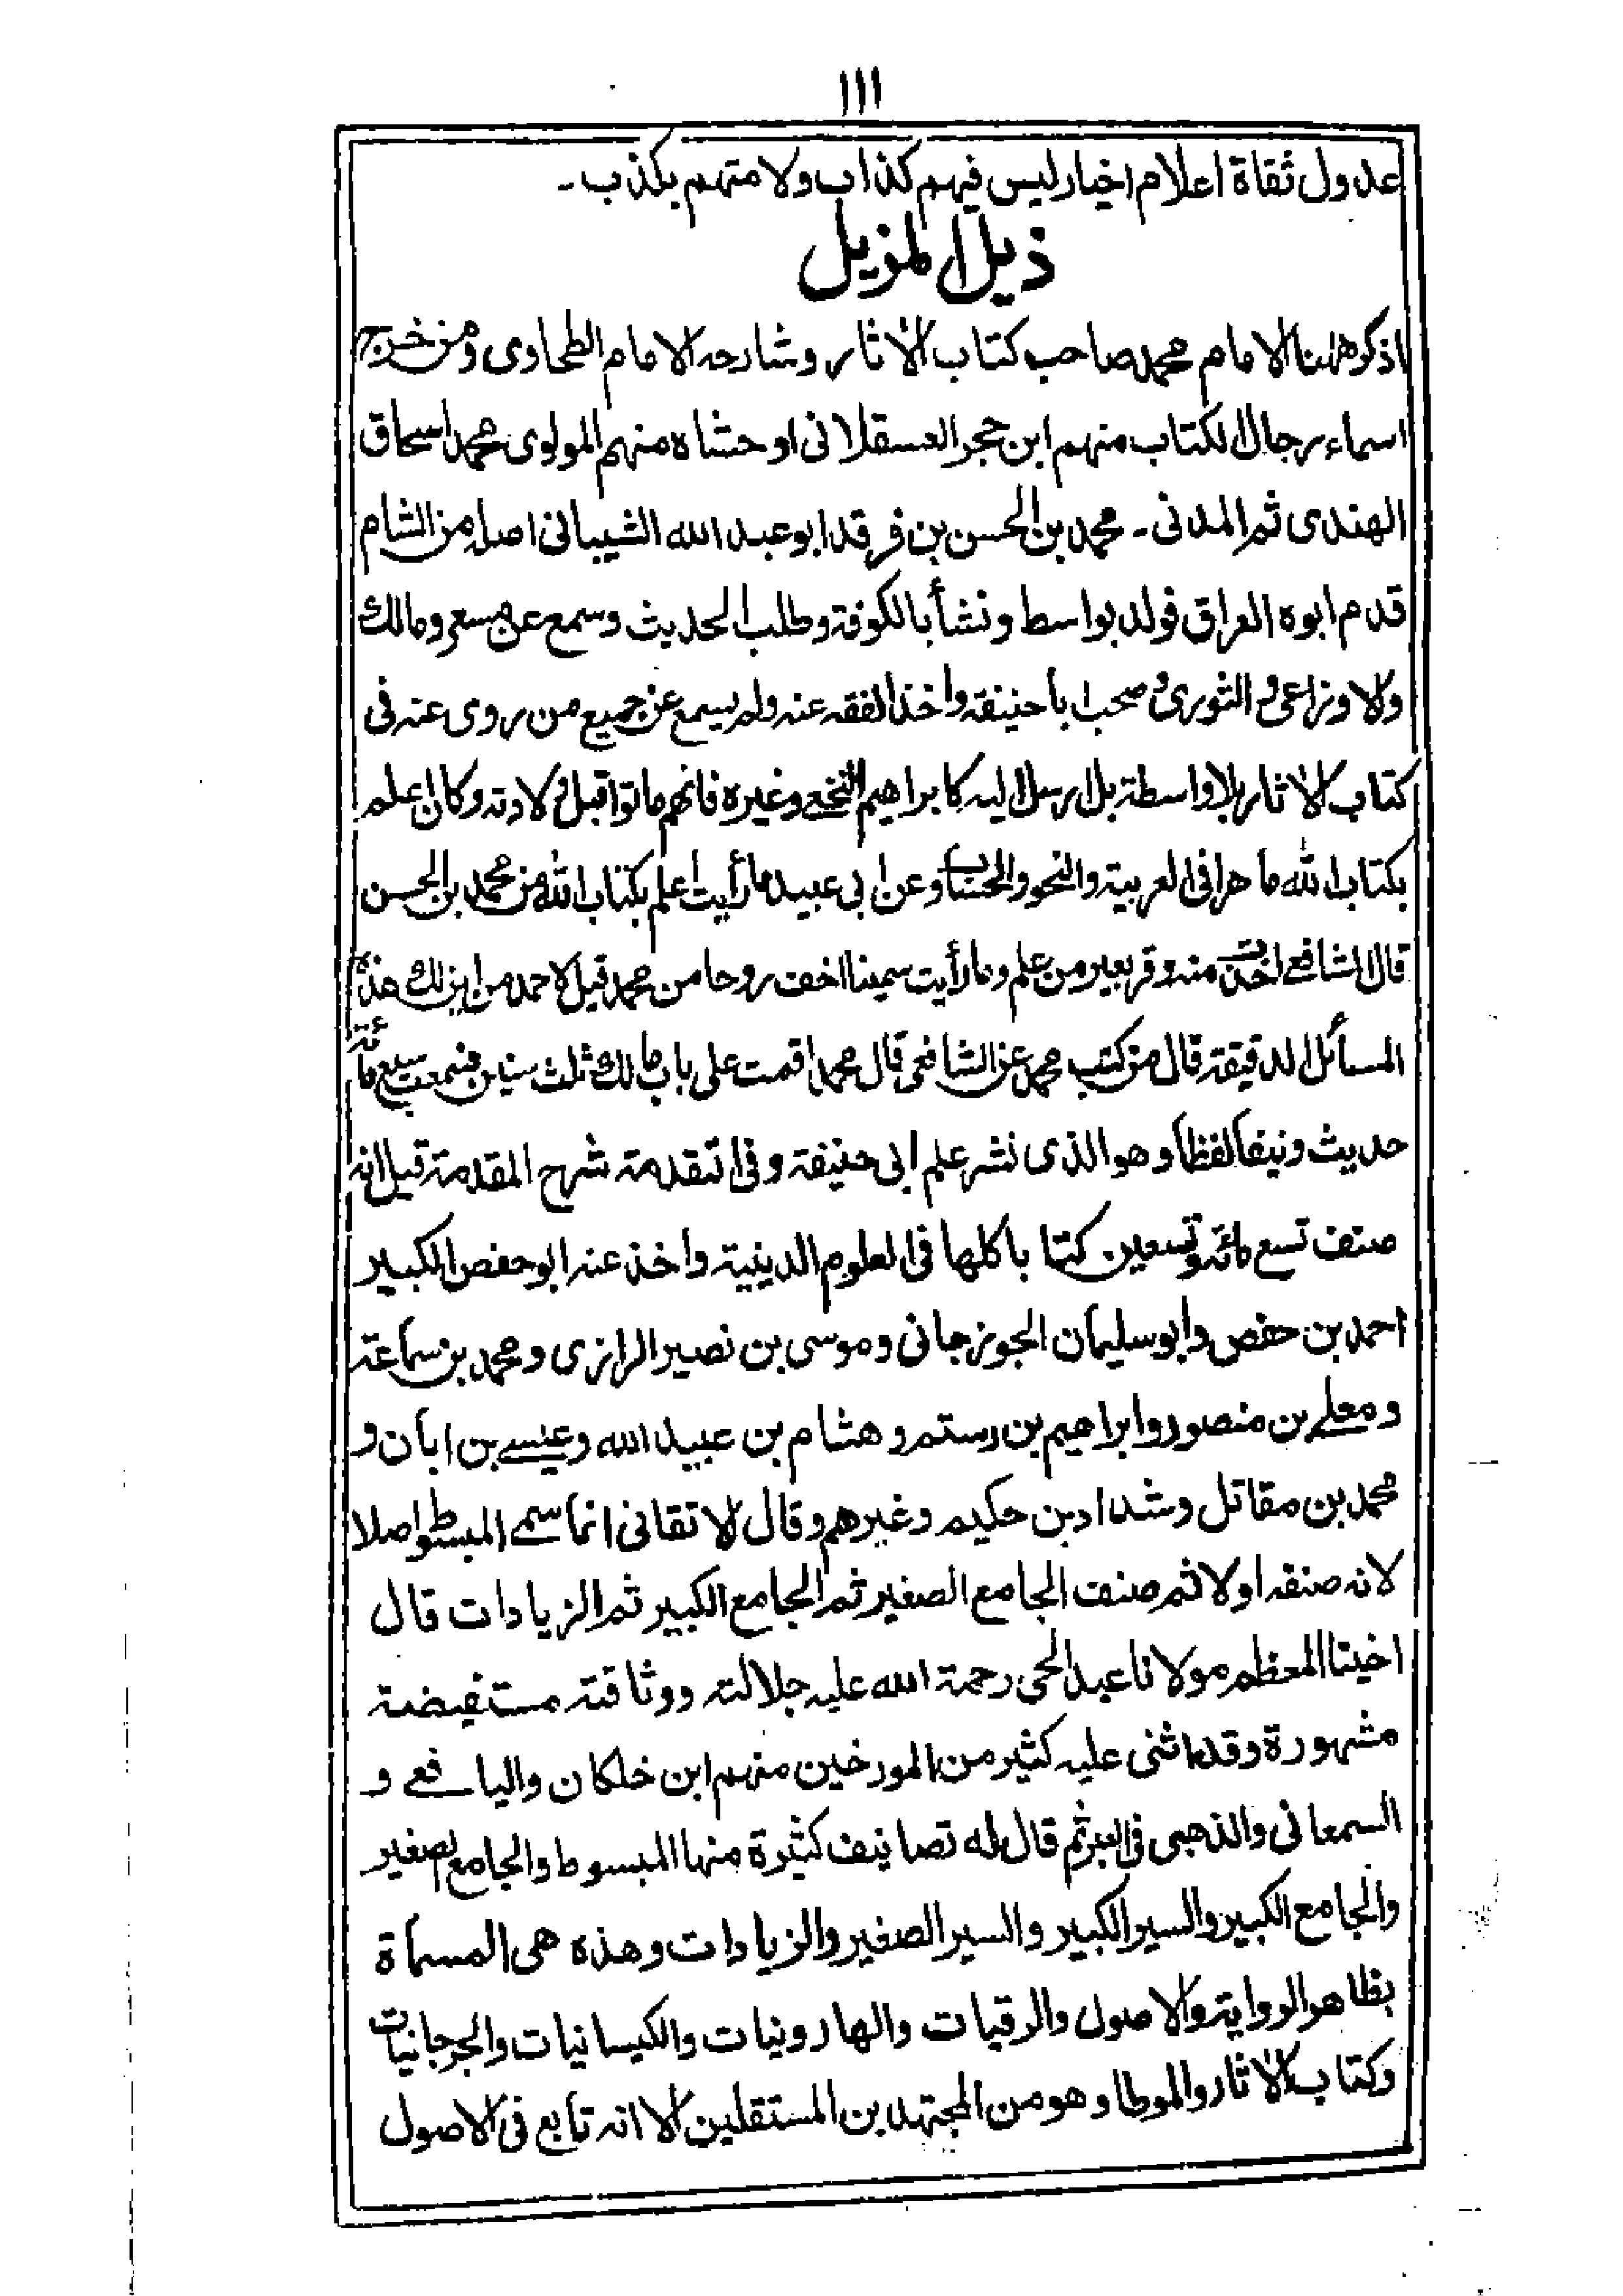 ١١١
عدول ثقاة اعلام اخيار ليس فيهم كذاب ولا متهم بكذب۔
ذيل المزيل
اذكر ههنا الامام محمد صاحب كتاب الاثار وشارحه الامام الطحاوى ومن خرج
اسماء رجال الكتاب منهم ابن حجر العسقلانى او حشاه منهم المولوى محمد اسحاق
الهندى ثم المدنى۔ محمد بن الحسن بن فرقد ابو عبد الله الشيبانى اصله من الشام
قدم ابوه العراق فولد بواسط ونشأ بالكوفة وطلب الحديث وسمع عن مسعر ومالك
والاوزاعى والثورى وصحب ابا حنيفة واخذ الفقه عنه ولم يسمع عن جميع من روى عنه فى
كتاب الاثار بلا واسطة بل ارسل اليه كابراهيم النخعى وغيره فانهم ماتوا قبل ولادته وكان اعلم
بكتاب الله ماهرا فى العربية والنحو والحساب وعن ابى عبيد ما رأيت اعلم بكتاب الله من محمد بن الحسن
قال الشافعى اخذت منه وقر بعير من علم وما رأيت سمينا اخف روحا من محمد قيل لاحمد من اين لك هذه
المسائل الدقيقة قال من كتب محمد عن الشافعى قال محمد اقمت على باب مالك ثلث سنين فسمعت سبع مائة
حديث ونيفا لفظا وهو الذى نشر علم ابى حنيفة وفى التقدمة شرح المقدمة قيل انه
صنف تسع مائة وتسعين كتابا كلها فى العلوم الدينية واخذ عنه ابو حفص الكبير
احمد بن حفص وابو سليمان الجوزجانى وموسى بن نصير الرازى ومحمد بن سماعة
ومعلے بن منصور وابراهيم بن رستم وهشام بن عبيد الله وعيسے بن ابان و
محمد بن مقاتل وشداد بن حكيم وغيرهم وقال الاتقانى انما سمے المبسوط اصلا
لانه صنفه اولا ثم صنف الجامع الصغير ثم الجامع الكبير ثم الزيادات قال
اخينا المعظم مولانا عبد الحى رحمة الله عليه جلالته ووثاقته مستفيضة
مشهورة وقد اثنى عليه كثير من المورخين منهم ابن خلكان واليافعے و
السمعانى والذهبى فى العبر ثم قال له تصانيف كثيرة منها المبسوط والجامع الصغير
والجامع الكبير والسير الكبير والسير الصغير والزيادات وهذه هى المسماة
بظاهر الرواية والاصول والرقيات والهارونيات والكيسانيات والجرجانيات
وكتاب الاثار والموطا وهو من المجتهدين المستقلين الا انه تابع فى الاصول